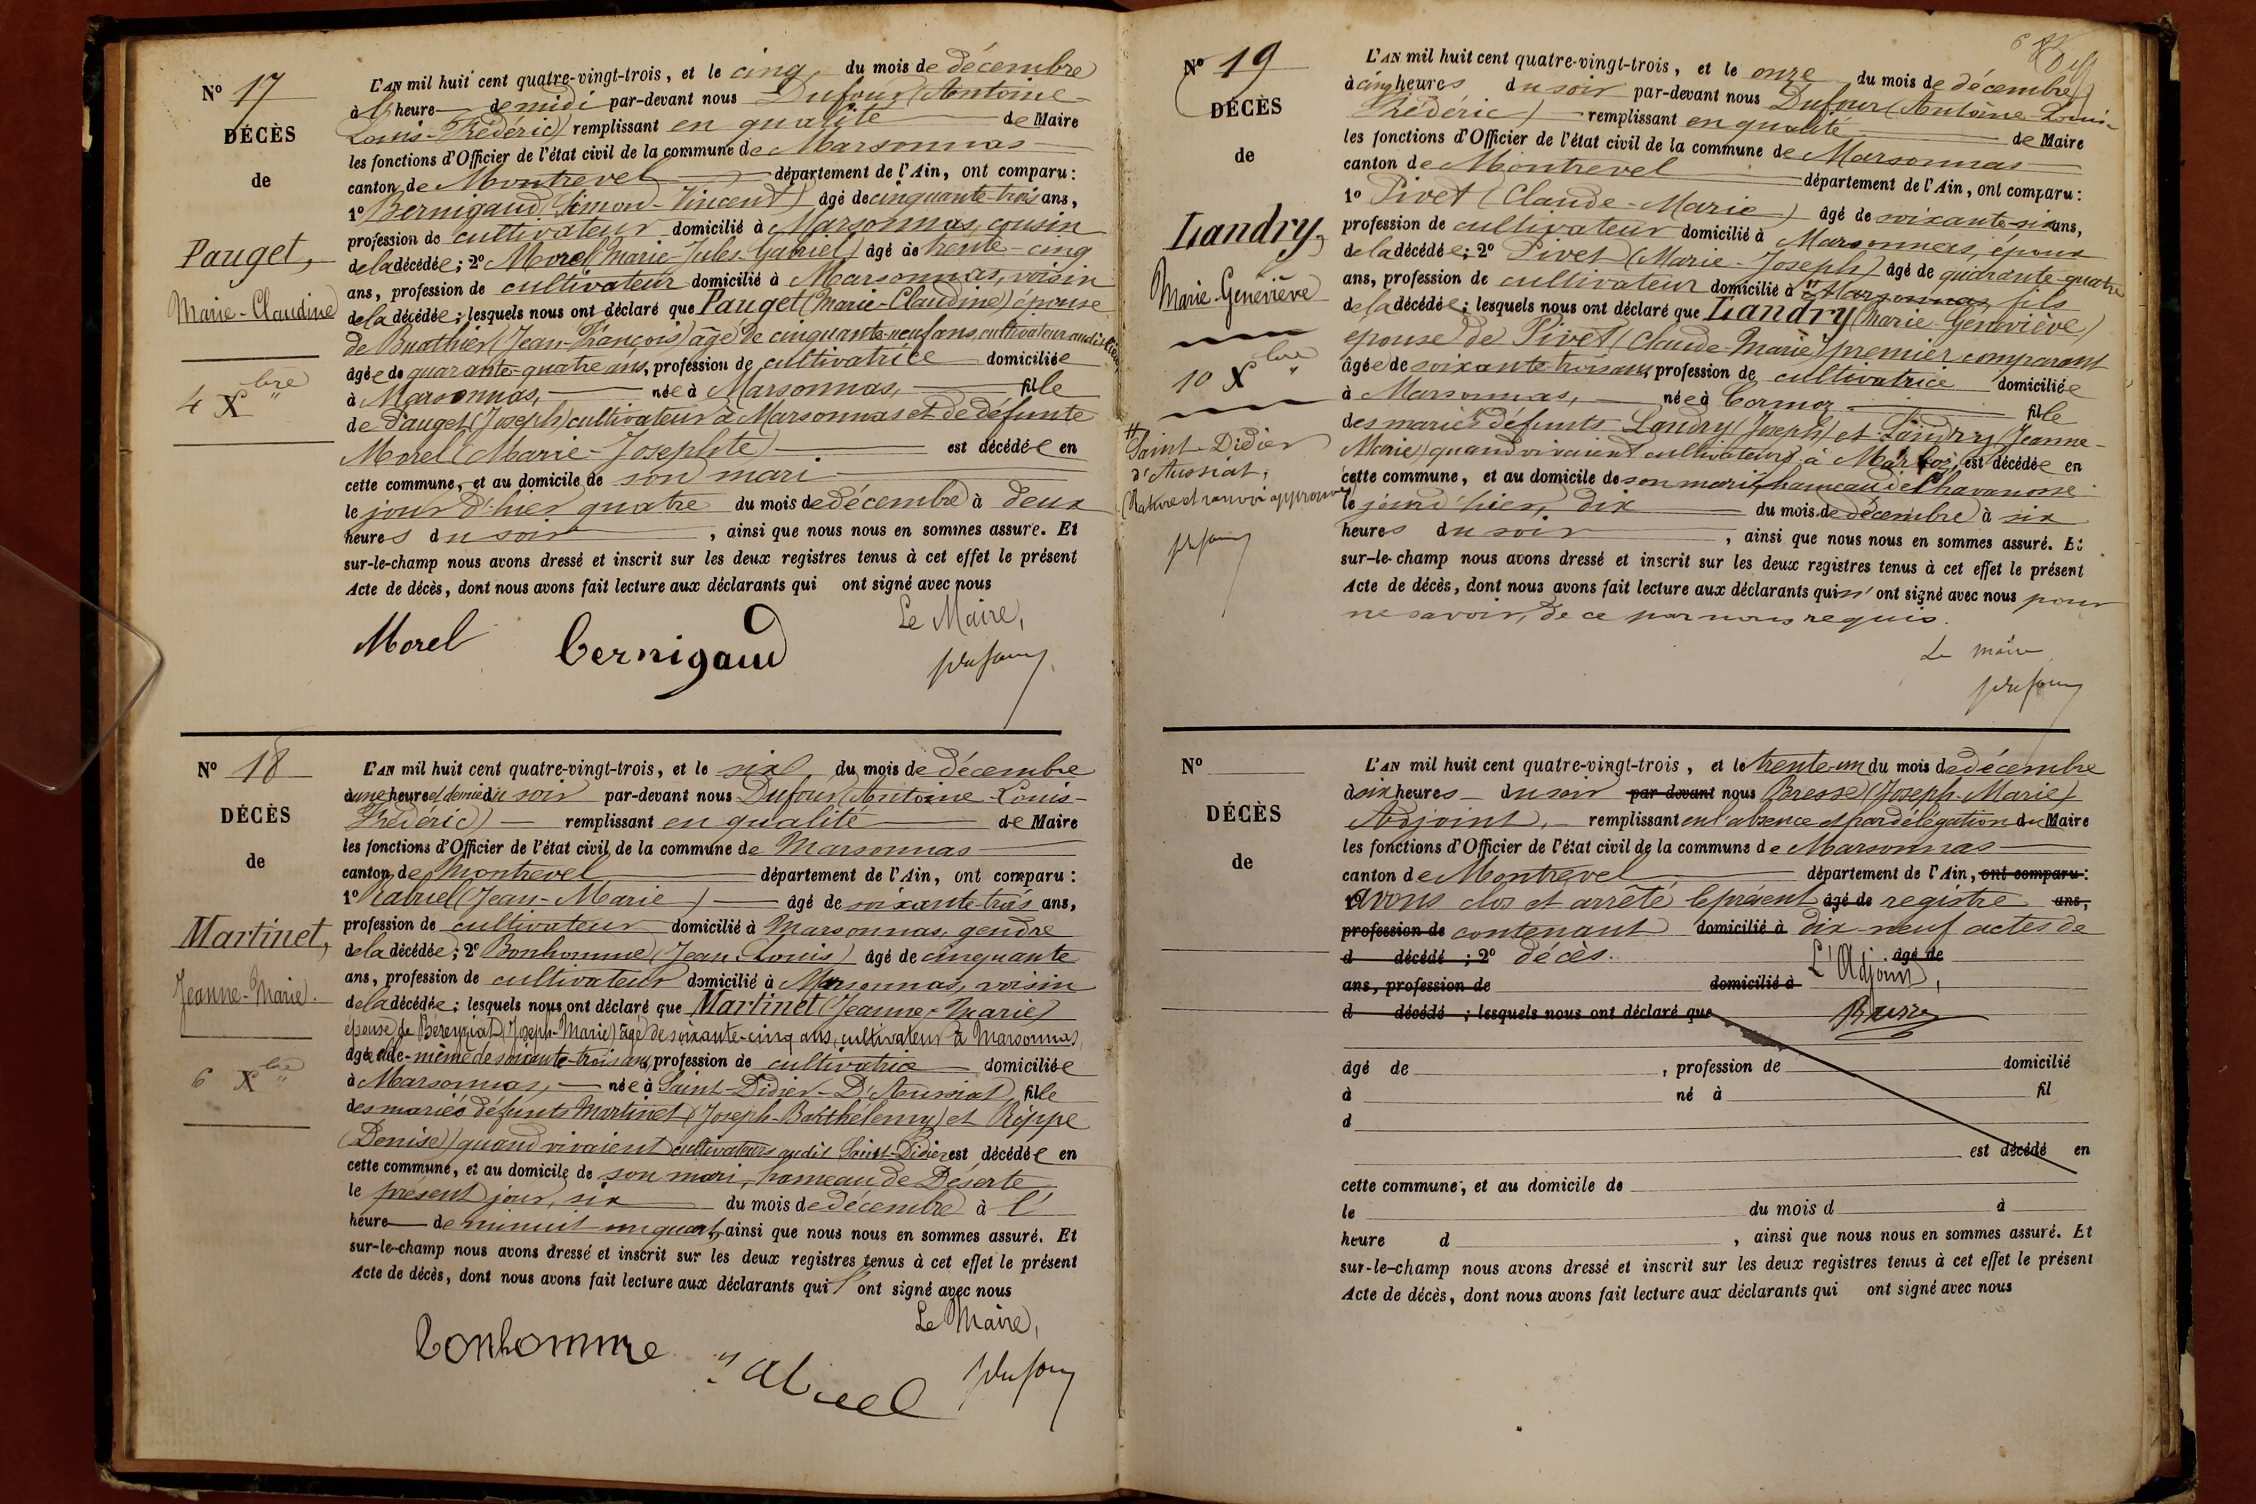 Nº 17
DÉCÈS
de
Pauget,
Marie-Claudine
4 Xbre
L'AN mil huit cent quatre-vingt-trois, et le cinq du mois de décembre
à l'heure de midi par-devant nous Dufour (Antoine-
Louis-Frédéric) remplissant en qualité de Maire
les fonctions d'Officier de l'état civil de la commune de Marsonnas
canton de Montrevel département de l'Ain, ont comparu :
1º Bernigaud (Simon-Vincent) âgé de cinquante-trois ans,
profession de cultivateur domicilié à Marsonnas, cousin
de la décédée ; 2º Morel Marie-Jules-Gabriel) âgé de trente-cinq
ans, profession de cultivateur domicilié à Marsonnas, voisin
de la décédée ; lesquels nous ont déclaré que Pauget (Marie-Claudine) épouse
de Buathier (Jean-François) âgé de cinquante-neuf ans, cultivateur audit lieu
âgée de quarante-quatre ans, profession de cultivatrice domiciliée
à Marsonnas, née à Marsonnas, fille
de Pauget (Joseph) cultivateur à Marsonnas et de défunte
Morel (Marie-Josephte) est décédée en
cette commune, et au domicile de son mari
le jour d'hier quatre du mois de décembre à deux
heures du soir, ainsi que nous nous en sommes assuré. Et
sur-le-champ nous avons dressé et inscrit sur les deux registres tenus à cet effet le présent
Acte de décès, dont nous avons fait lecture aux déclarants qui ont signé avec nous
Le Maire,
Morel Bernigaud Dufour
Nº 18
DÉCÈS
de
Martinet,
Jeanne-Marie.
6 Xbre
L'AN mil huit cent quatre-vingt-trois, et le six du mois de décembre
à une heure et demie du soir par-devant nous Dufour (Antoine-Louis-
Frédéric) remplissant en qualité de Maire
les fonctions d'Officier de l'état civil de la commune de Marsonnas
canton de Montrevel département de l'Ain, ont comparu :
1º Rabuel (Jean-Marie) âgé de soixante-trois ans,
profession de cultivateur domicilié à Marsonnas, gendre
de la décédée ; 2º Bonhomme (Jean-Louis) âgé de cinquante
ans, profession de cultivateur domicilié à Marsonnas, voisin
de la décédée ; lesquels nous ont déclaré que Martinet (Jeanne-Marie)
épouse de Béreyziat (Joseph-Marie) âgé de soixante-cinq ans, cultivateur à Marsonnas,
âgée elle-même de soixante-trois ans, profession de cultivatrice domiciliée
à Marsonnas, née à Saint-Didier-D'Aussiat, fille
des mariés défunts Martinet (Joseph-Barthélemy) et Réppe
(Denise) quand vivaient cultivateurs audit Saint-Didier est décédée en
cette commune, et au domicile de son mari, hameau de Déserte
le présent jour, six du mois de décembre à l'
heure de minuit un quart, ainsi que nous nous en sommes assuré. Et
sur-le-champ nous avons dressé et inscrit sur les deux registres tenus à cet effet le présent
Acte de décès, dont nous avons fait lecture aux déclarants qui l'ont signé avec nous
Le Maire,
Bonhomme Rabuel Dufour
Nº 19
DÉCÈS
de
Landry,
Marie-Geneviève
10 Xbre
Saint-Didier
d'Aussiat,
(Rature et renvoi approuvés)
Dufour
L'AN mil huit cent quatre-vingt-trois, et le onze du mois de décembre
à cinq heures du soir par-devant nous Dufour (Antoine-Louis-
Frédéric) remplissant en qualité de Maire
les fonctions d'Officier de l'état civil de la commune de Marsonnas
canton de Montrevel département de l'Ain, ont comparu :
1º Pivet (Claude-Marie) âgé de soixante-six ans,
profession de cultivateur domicilié à Marsonnas, époux
de la décédée ; 2º Pivet (Marie-Joseph) âgé de quarante-quatre
ans, profession de cultivateur domicilié à Marsonnas, fils
de la décédée ; lesquels nous ont déclaré que Landry (Marie-Geneviève)
épouse de Pivet (Claude-Marie) premier comparant
âgée de soixante-trois ans, profession de cultivatrice domiciliée
à Marsonnas, née à Cormoz fille
des mariés défunts Landry (Joseph) et Landry (Jeanne-
Marie) quand vivaient cultivateurs à est décédée en
cette commune, et au domicile de son mari, hameau de Chavanosse
le jour d'hier, dix du mois de décembre à six
heures du soir, ainsi que nous nous en sommes assuré. Et
sur-le-champ nous avons dressé et inscrit sur les deux registres tenus à cet effet le présent
Acte de décès, dont nous avons fait lecture aux déclarants qui n'ont signé avec nous pour
ne savoir, de ce par nous requis.
Le maire
Dufour
Nº
DÉCÈS
de
L'AN mil huit cent quatre-vingt-trois, et le trente-un du mois de décembre
à six heures du soir par-devant nous Bresse (Joseph-Marie)
Adjoint, remplissant en l'absence et par délégation du Maire
les fonctions d'Officier de l'état civil de la commune de Marsonnas
canton de Montrevel département de l'Ain, ont comparu :
avons clos et arrêté le présent âgé de registre ans,
profession de contenant domicilié à dix-neuf actes de
d décédé ; 2º décès. âgé de
L'Adjoint,
ans, profession de domicilié à
d décédé ; lesquels nous ont déclaré que
Bresse
âgé de , profession de domicilié
à né à fil
d
est décédé en
cette commune, et au domicile de
le du mois d à
heure d , ainsi que nous nous en sommes assuré. Et
sur-le-champ nous avons dressé et inscrit sur les deux registres tenus à cet effet le présent
Acte de décès, dont nous avons fait lecture aux déclarants qui ont signé avec nous